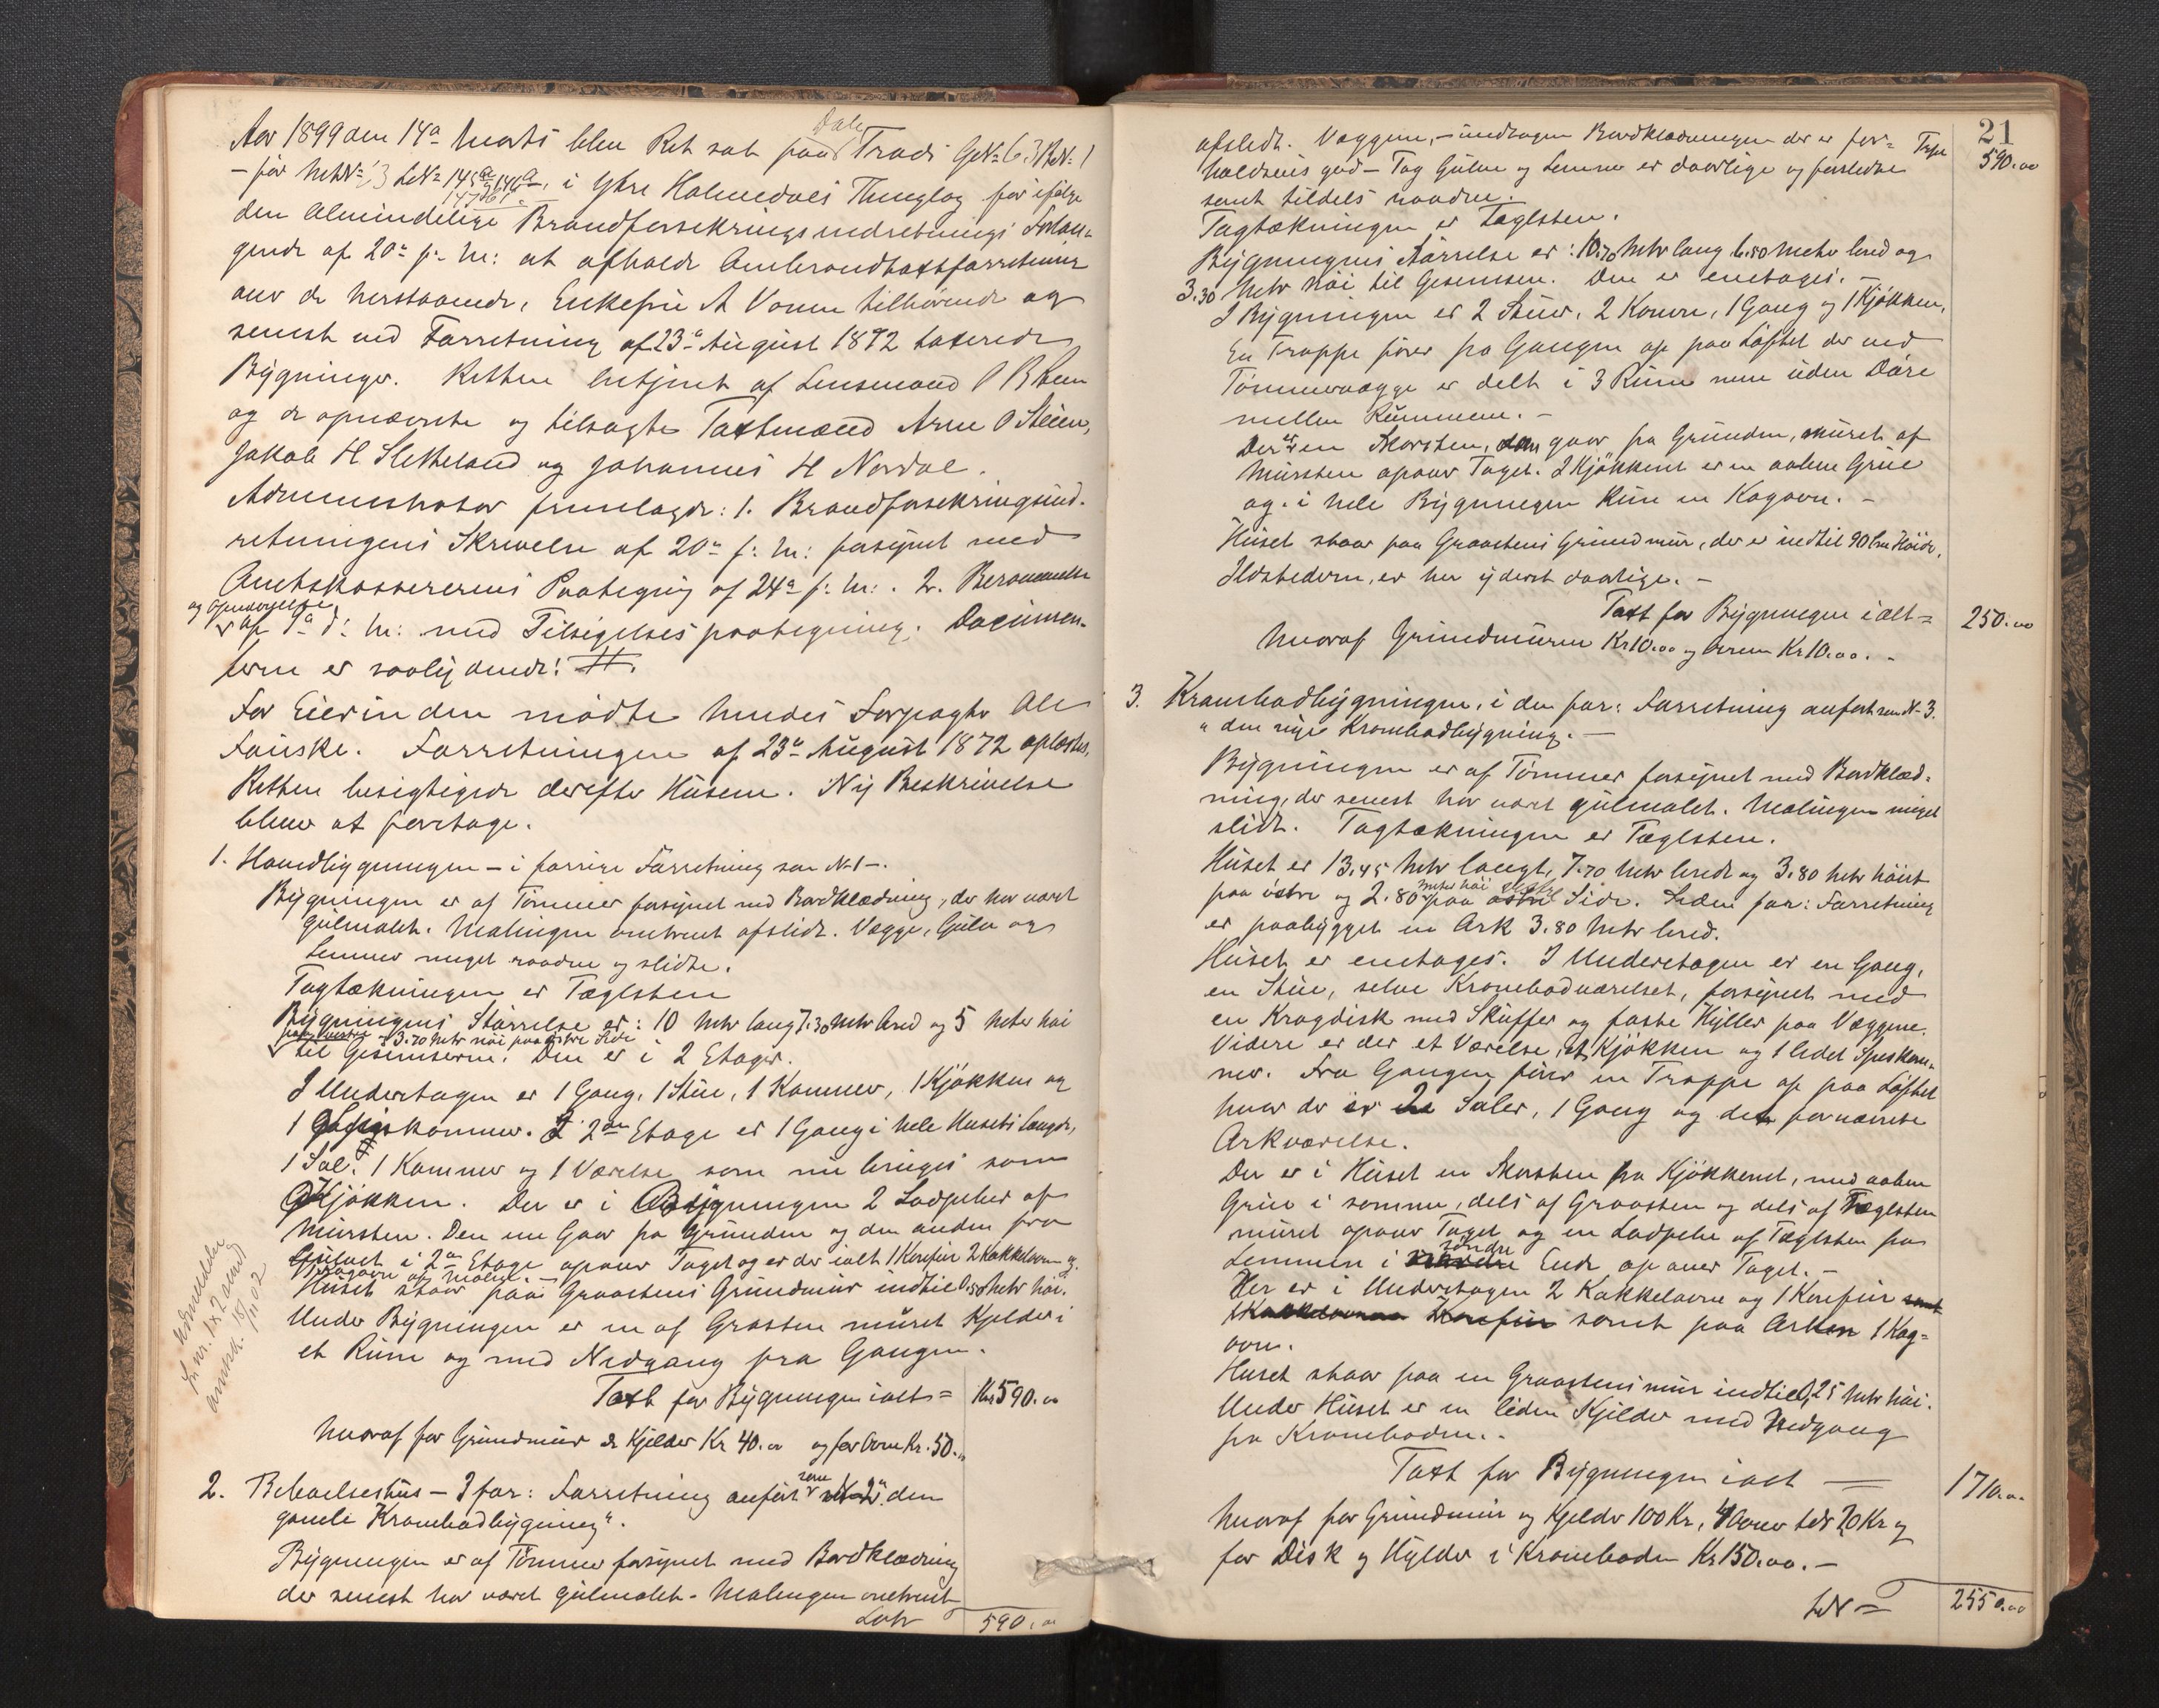 Aar 1899 den 14de Marts blev Ret sat paa Dale Træds GN= 63 BN= 1
– før MtrN= 13 LN= 145a 146a, i Ytre Holmedals Thinglag for ifølge
147 b1
den Almindelige Brandforsekringsindretnings Forlan-
gende af 20de f. M: at afholde Ombrandtaxtforretning
over de herstaaende, Enkefru A Vonen tilhørende og
senest ved Forretning af 23de August 1872 taxerede
Bygninger. Retten betjent af Lensmand
og de opnævnte og tilsagte Taxtmænd Arne O Steien,
Jakob H Sletteland og Johannes H Nordal.
Administrator fremlagde: 1. Brandforsekringsind-
retningens Skrivelse af 20de f: M: forsynet med
Amtskassererens Paategning af 24de f: M: . 2. Berammelse
og Opnævnelse
af 7de d: M: med Tilsigelsespaategning. Documen-
terne er saalydende: #.
For Eierinden mødte hendes Forpagter Ole
Fauske. Forretningen af 23de August 1872 oplæstes.
Retten besigtigede derefter Husene. Ny Beskrivelse
blev at foretage.
1. Hovedbygningen – i forrige Forretning som N=1 –.
Bygningen er af Tømmer forsynet med Bordklædning, der har været
gulmalet. Malingen omtrent afslidt. Vægge, Gulv og
Lemmer meget raadne og slidte.
Tagtækningen er Tæglsten
Bygningens Størrelse er: 10 Metr lang 7.30 Metr bred og 5 Meter høi
paa vestre og 3.70 Metr høi paa østre Side
til Gesimserne. Den er i 2 Etager.
I Underetagen er 1 Gang, 1 Stue, 1 Kammer, 1 Kjøkken og
1 Spiskammer. I 2den Etage er 1 Gang i hele Husets Længde,
1 Sal, 1 Kammer og 1 Værelse som nu bruges som
Kjøkken. Der er i Bygningen 2 Ladpiber af
Mursten. Den ene gaar fra Grunden og den anden fra
Gulvet i 2den Etage opover Taget og er der ialt 1 Komfur 2 Kakkelovn og
1 Kogovn af Maling. –
Huset staar paa Graastens Grundmur indtil 0.50 Metr høi.
Under Bygningen er en af Graasten muret Kjelder i
et Rum og med Nedgang fra Gangen.
Taxt for Bygningen ialt = Kr 590.00
hvoraf for Grundmur & Kjelder Kr 40.00 og for Ovne Kr. 50.00
2. Beboelseshus – I for: Forretning anført som N=2 "den
gamle Krambodbygning".
Bygningen er af Tømmer forsynet med Bordklædning
der senest har været gulmalet. Malingen omtrent
Latr 590.00
Anmeldelse
Ln nr. 1 & 2 ansat
anmerk. 18/11 02
21
afslidt. Væggene, – undtagen Bordklædningen der er for= Tspt 590.00
holdsvis god – Tag Gulve og Lemmer er daarlige og forslidte
samt tildels raadne.
Tagtækningen er Tæglsten.
Bygningens Størrelse er: 10.70 Metr lang 6.50 Metr bred og
3.30 Metr høi til Gesimsen. Den er enetages. –
I Bygningen er 2 Stuer, 2 Kamre, 1 Gang og 1 Kjøkken,
En Trappe fører fra Gangen op paa Loftet der ved
Tømmervægge er delt i 3 Rum men uden Døre
mellem Rummene. –
Der er en Skorsten, som gaar fra Grunden, muret af
Mursten opover Taget. I Kjøkkenet er en aaben Grue
og i hele Bygningen kun en Kogovn. –
Huset staar paa Graastens Grundmur, der er indtil 90 Cm Høide.
Ildstederne er her yderst daarlige. –
Taxt for Bygningen ialt = 250.00
hvoraf Grundmuren Kr 10.00 og Ovnen Kr 10.00. –
3. Krambodbygningen, i den for: Forretning anført som N=3.
"den nye Krambodbygning. –
Bygningen er af Tømmer forsynet med Bordklæd-
ning, der senest har været gulmalet. Malingen meget
slidt. Tagtækningen er Tæglsten.
Huset er 13.45 Metr langt, 7.70 Metr bredt og 3.80 Metr høit
paa østre og 2.80 Meter høi paa vestre Side. Siden for: Forretning
er paabygget en Ark 3.80 Metr bred.
Huset er enetages. I Underetagen er en Gang,
en Stue, selve Krambodværelset, forsynet med
en Kragdisk med Skuffer og faste Hyller paa Væggene.
Videre er der et Værelse, et Kjøkken og 1 lidet Spiskam-
mer. Fra Gangen fører en Trappe op paa Loftet
hvor der er 2 Saler, 1 Gang og det fornævnte
Arkværelse.
Der er i Huset en Skorsten fra Kjøkkenet, med aaben
Grue i samme, dels af Graasten og dels af Tæglsten
muret opover Taget og en Ladpibe af Tæglsten fra
Lemmen i søndre Ende op over Taget. –
Her er i Underetagen 2 Kakkelovne og 1 Komfur
samt paa Arken 1 Kog-
ovn.
Huset staar paa en Graastens mur indtil 0,25 Metr høi.
Under Huset er en liden Kjelder med Nedgang
fra Kramboden. –
Taxt for Bygningen ialt = 1710.00
hvoraf for Grundmur og Kjelder 100 Kr, 4 Ovner tils 70 Kr og
for Disk og Hylder i Kramboden Kr 150.00. –
Latr = 2550.00